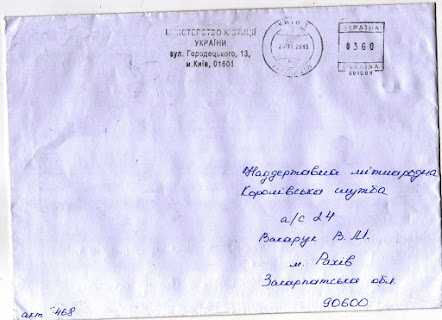 МІНІСТЕРСТВО ЮСТИЦІЇ
УКРАЇНИ
вул. Городецького, 13,
м.Київ, 01601
КИЇВ
2015
УКРАЇНА
0360
UKRAINA
Наддержавна міжнародна
Королівська служба
а/с 24
Вакарук В.М.
м. Рахів
Закарпатська обл.
90600
акт 468